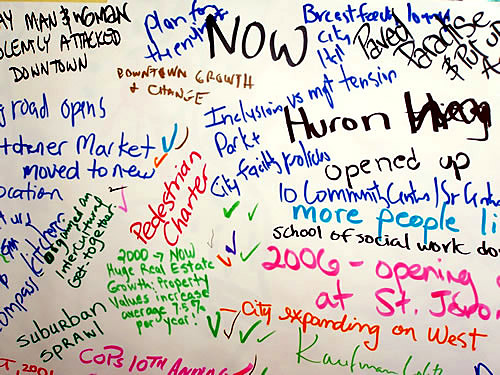 AY MAN & WOMAN
OLENTLY ATTACKED
DOWNTOWN
plan for
NOW
Breastfeeding
city
Hall
Paved
Paradise
& Put up
DOWNTOWN GROWTH
& CHANGE
g road opens
Inclusion vs mgt tension
Park +
City facility policies
Huron
opened up
tchener Market
moved to new
ocation
Pedestrian
Charter
10 Community Centres / Sr Centres
more people li
school of social work do
organized an
Intercultural
Get-together
kitchens
ompass
2000 → NOW
Huge Real Estate
Growth: Property
Values increase
average 7.5%
per year!
2006 - opening
at St. Jero
suburban
SPRAWL
City expanding on West
Kaufman Lofts
COPS 10TH